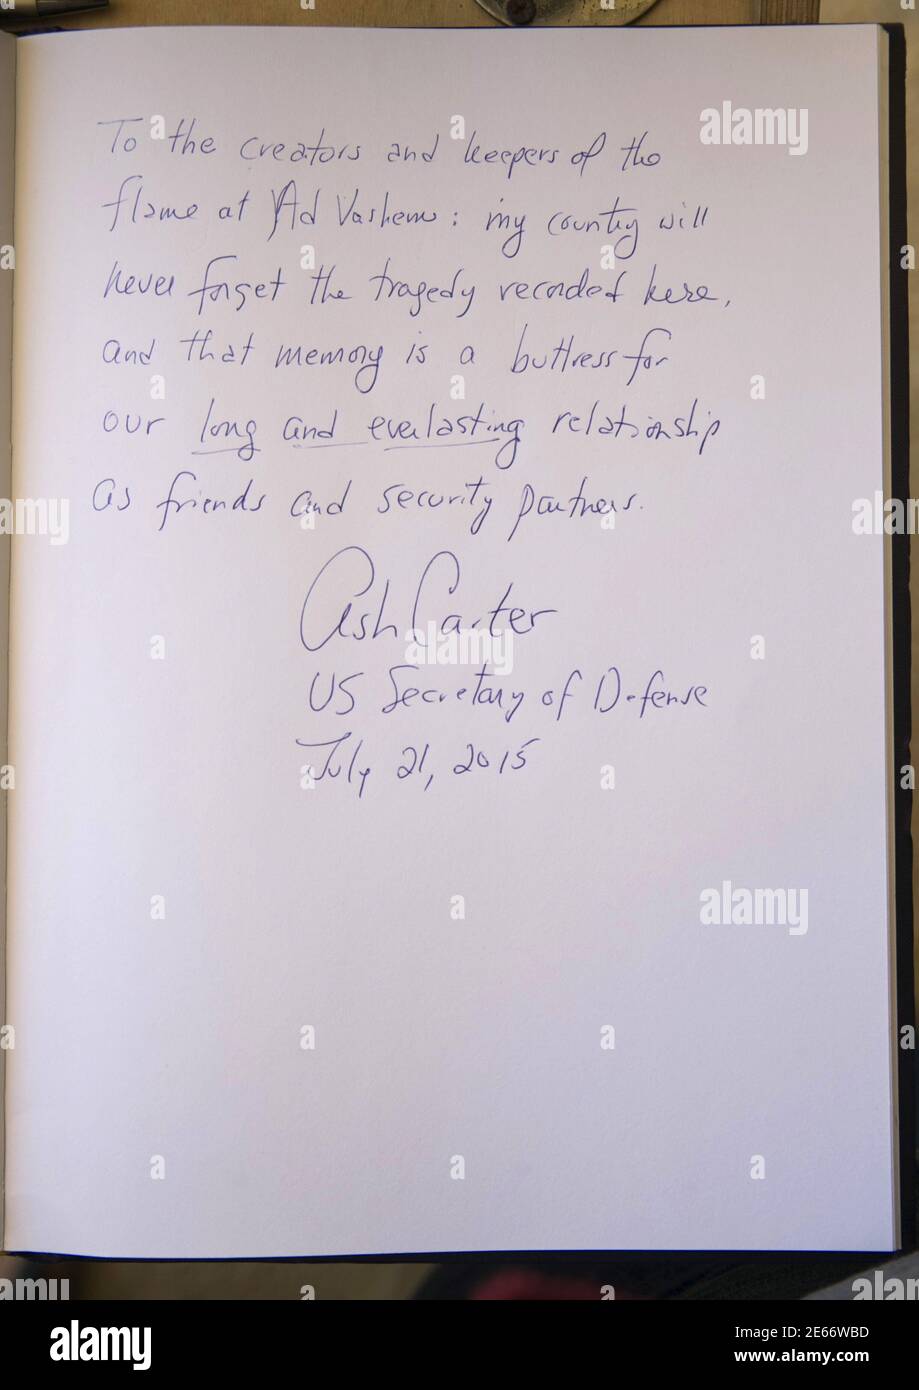 To the creators and keepers of the
flame at YAd Vashem: my country will
never forget the tragedy recorded here,
and that memory is a buttress for
our long and everlasting relationship
as friends and security partners.
Ash Carter
US Secretary of Defense
July 21, 2015
alamy
alamy
Image ID: 2E66WBD
www.alamy.com